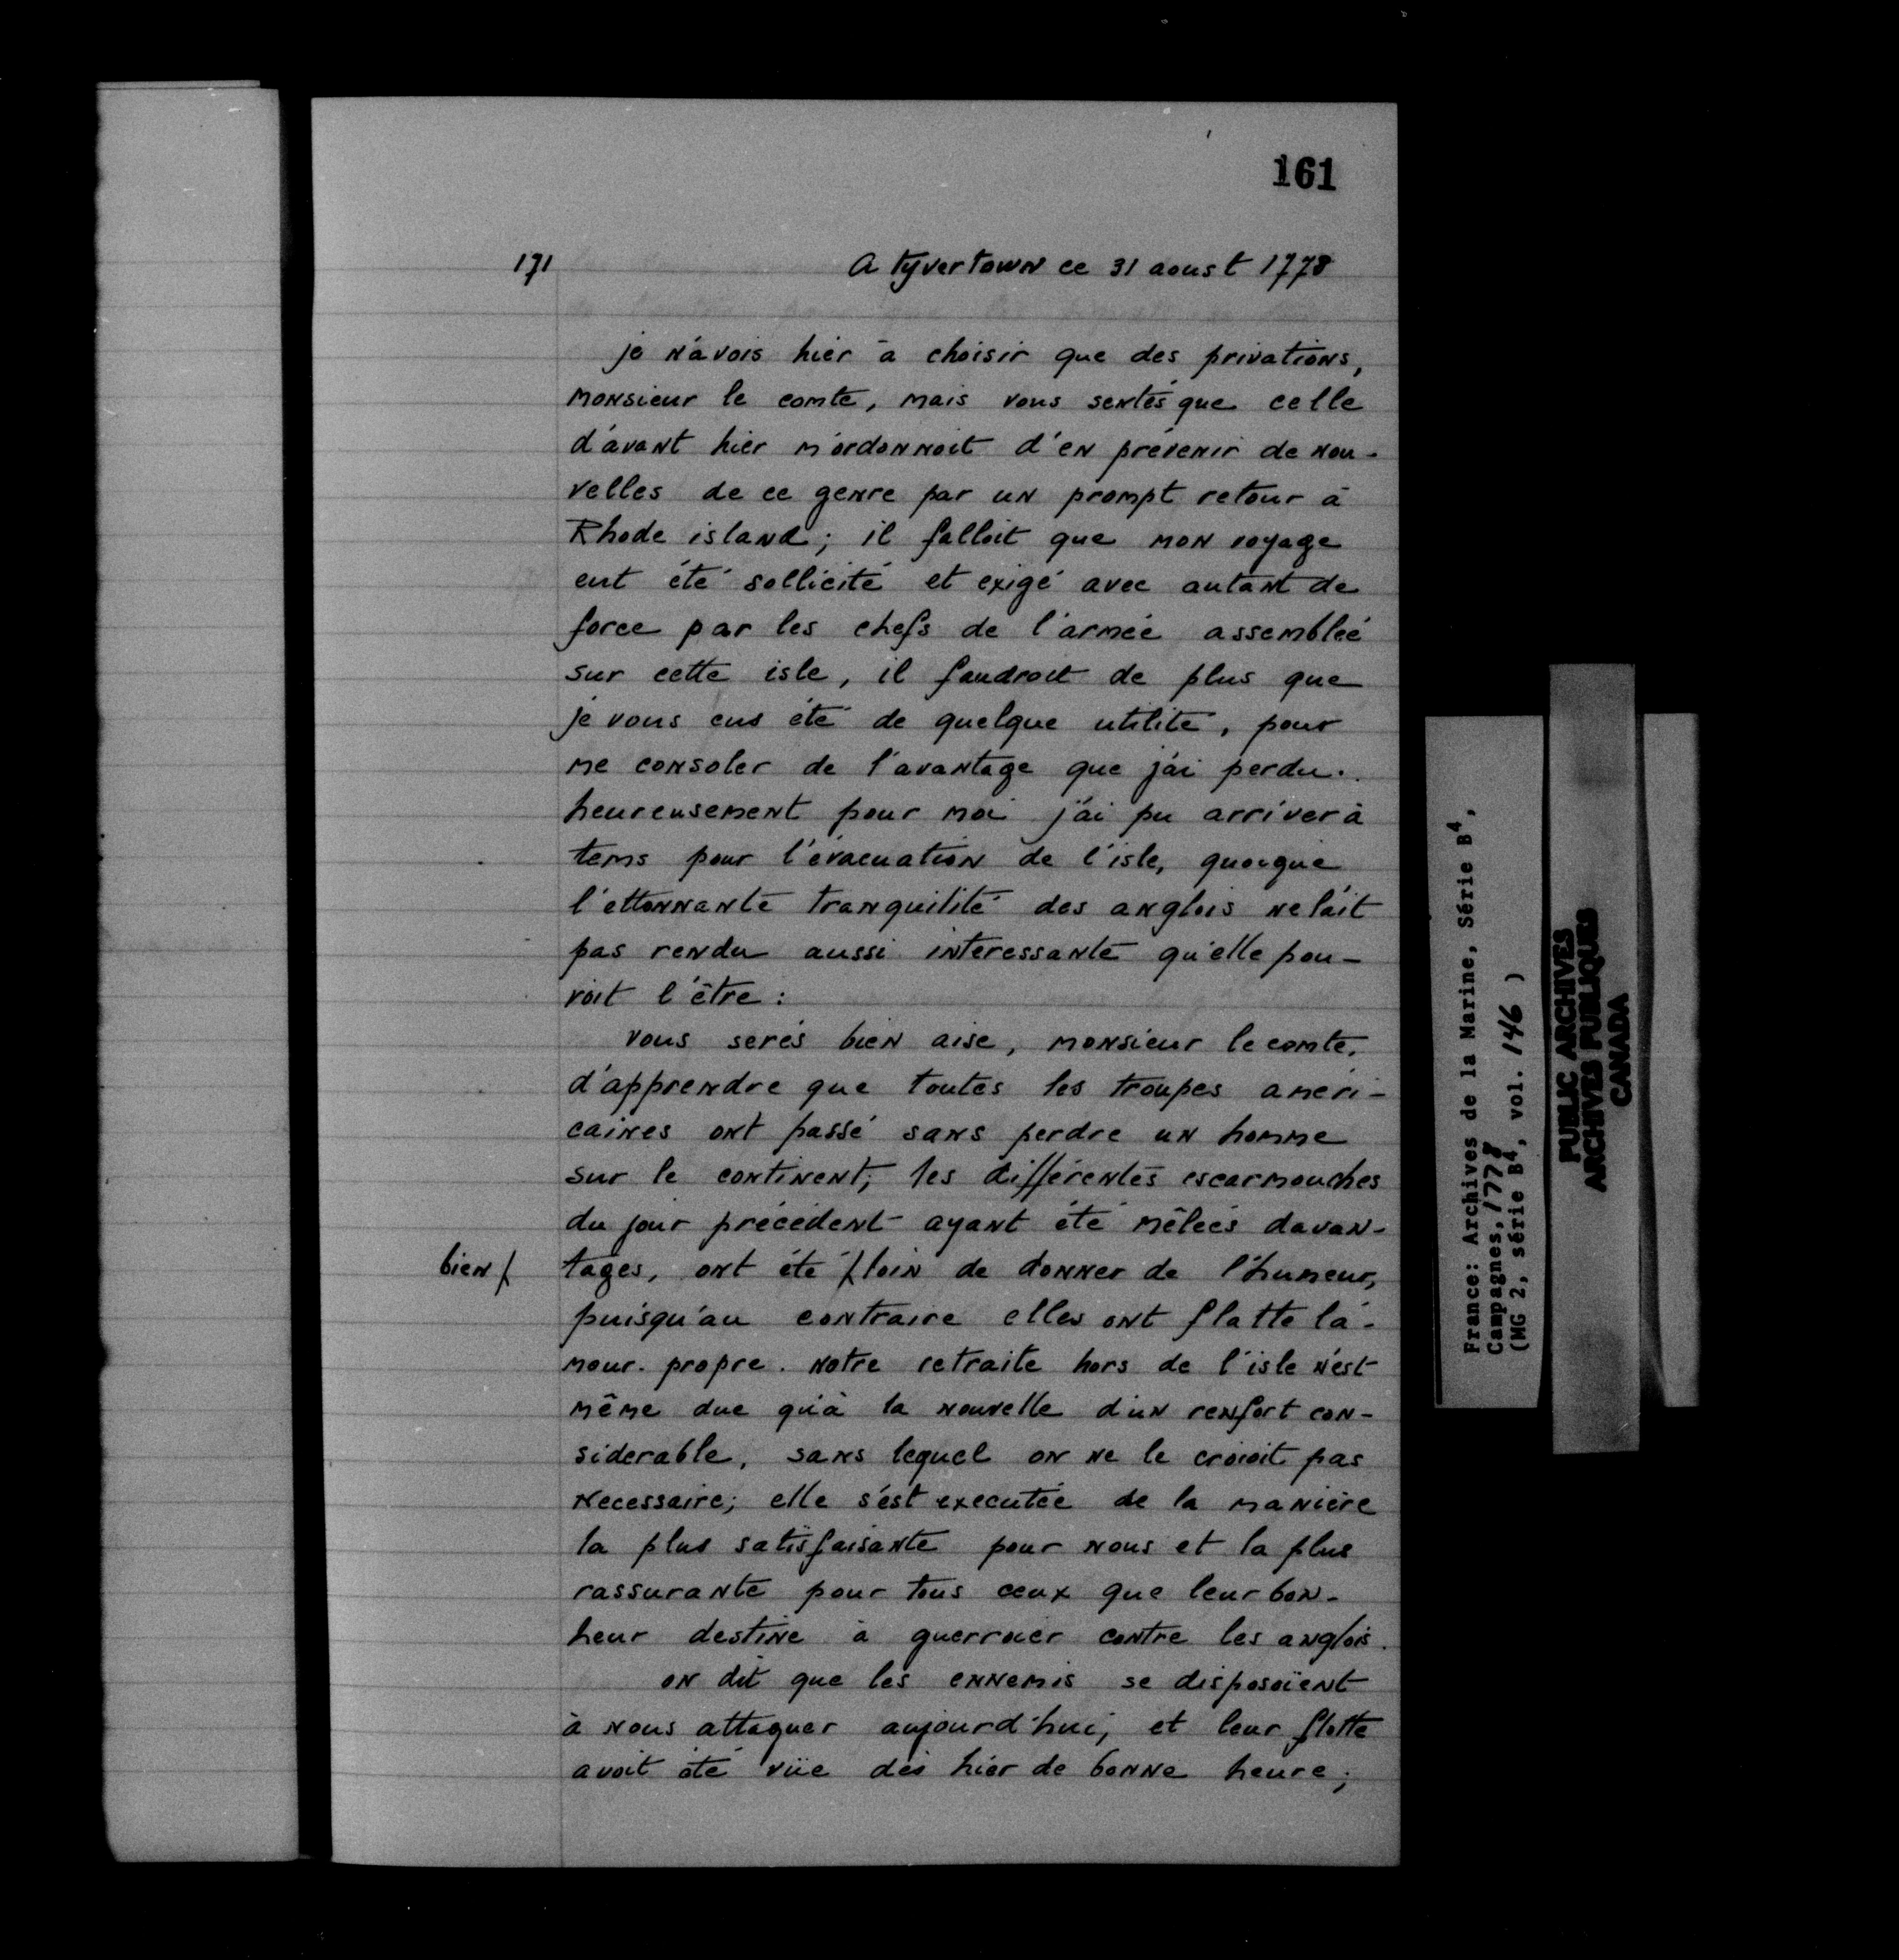 161
171
A tyvertown ce 31 aoust 1778
je n'avois hier à choisir que des privations,
monsieur le comte, mais vous sentés que celle
d'avant hier m'ordonnoit d'en prévenir de nou-
velles de ce genre par un prompt retour à
Rhode island; il falloit que mon voyage
eut été sollicité et exigé avec autant de
force par les chefs de l'armée assemblée
sur cette isle, il faudroit de plus que
je vous eus été de quelque utilité, pour
me consoler de l'avantage que j'ai perdu.
heureusement pour moi j'ai pu arriver à
tems pour l'évacuation de l'isle, quoique
l'ettonnante tranquilité des anglois ne l'ait
pas rendu aussi interessante qu'elle pou-
voit l'être:
vous serés bien aise, monsieur le comte,
d'apprendre que toutes les troupes améri-
caines ont passé sans perdre un homme
sur le continent; les différentes escarmouches
du jour précédent ayant été mêleés davan-
bien/ tages, ont été / loin de donner de l'humeur,
puisqu'au contraire elles ont flatté l'a-
mour-propre. notre retraite hors de l'isle n'est
même due qu'à la nouvelle d'un renfort con-
siderable, sans lequel on ne le croioit pas
necessaire; elle s'est executée de la manière
la plus satisfaisante pour nous et la plus
rassurante pour tous ceux que leur bon-
heur destine à guerroier contre les anglois.
on dit que les ennemis se disposoient
à nous attaquer aujourd'hui, et leur flotte
avoit été vüe dès hier de bonne heure;
France: Archives de la Marine, Série B4,
Campagnes, 1778
(MG 2, série B4, vol. 146 )
PUBLIC ARCHIVES
ARCHIVES PUBLIQUES
CANADA